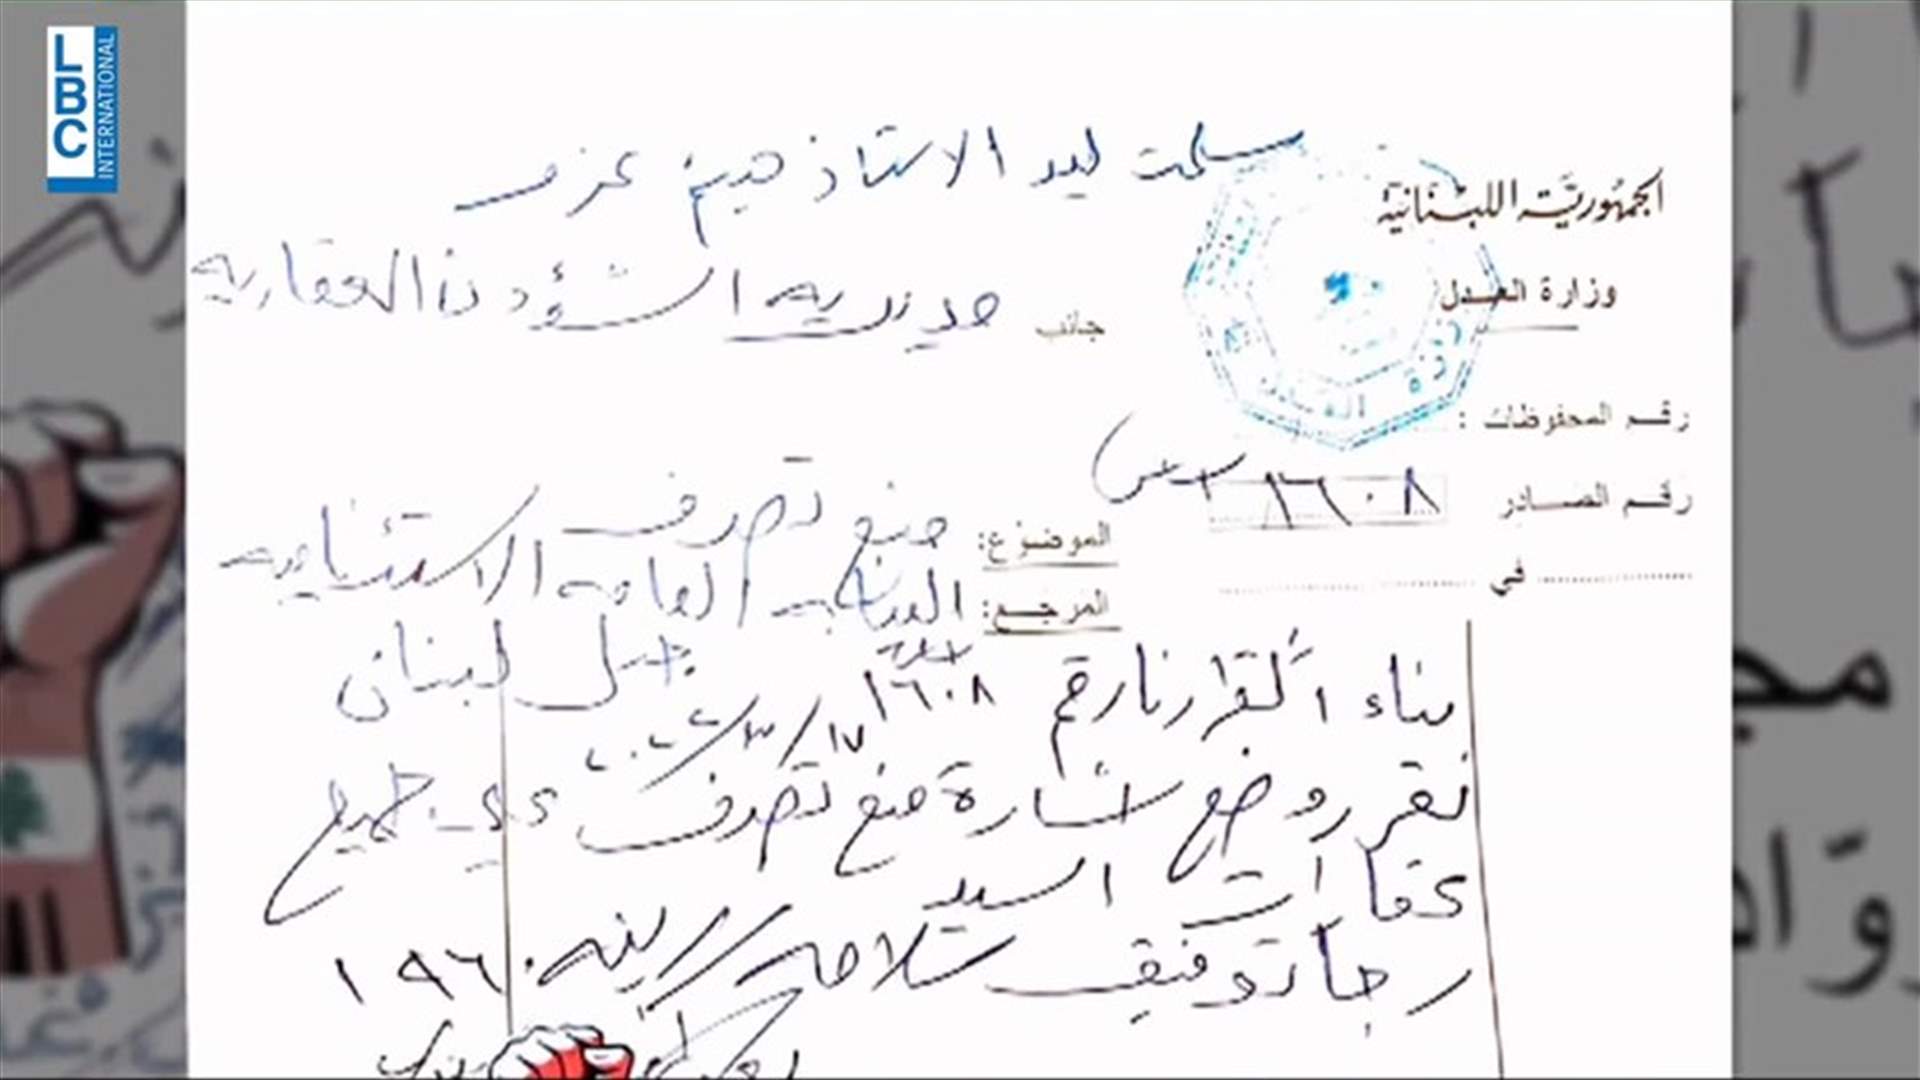 LBC
INTERNATIONAL
سلمت ليد الاستاذ هيثم عزو
الجمهورية اللبنانية
وزارة العدل
جانب مديرية الشؤون العقارية
رقم المحفوظات :
رقم الصادر ١٦٠٨
في
الموضوع: منع تصرف
المرجع: النيابة العامة الاستئنافية
جبل لبنان
بناء لقرارنا رقم ١٦٠٨ ١٧/٣/٢٠٢٢
نقرر وضع اشارة منع تصرف على جميع
عقارات السيد
رجا توفيق سلامه ١٩٦٠